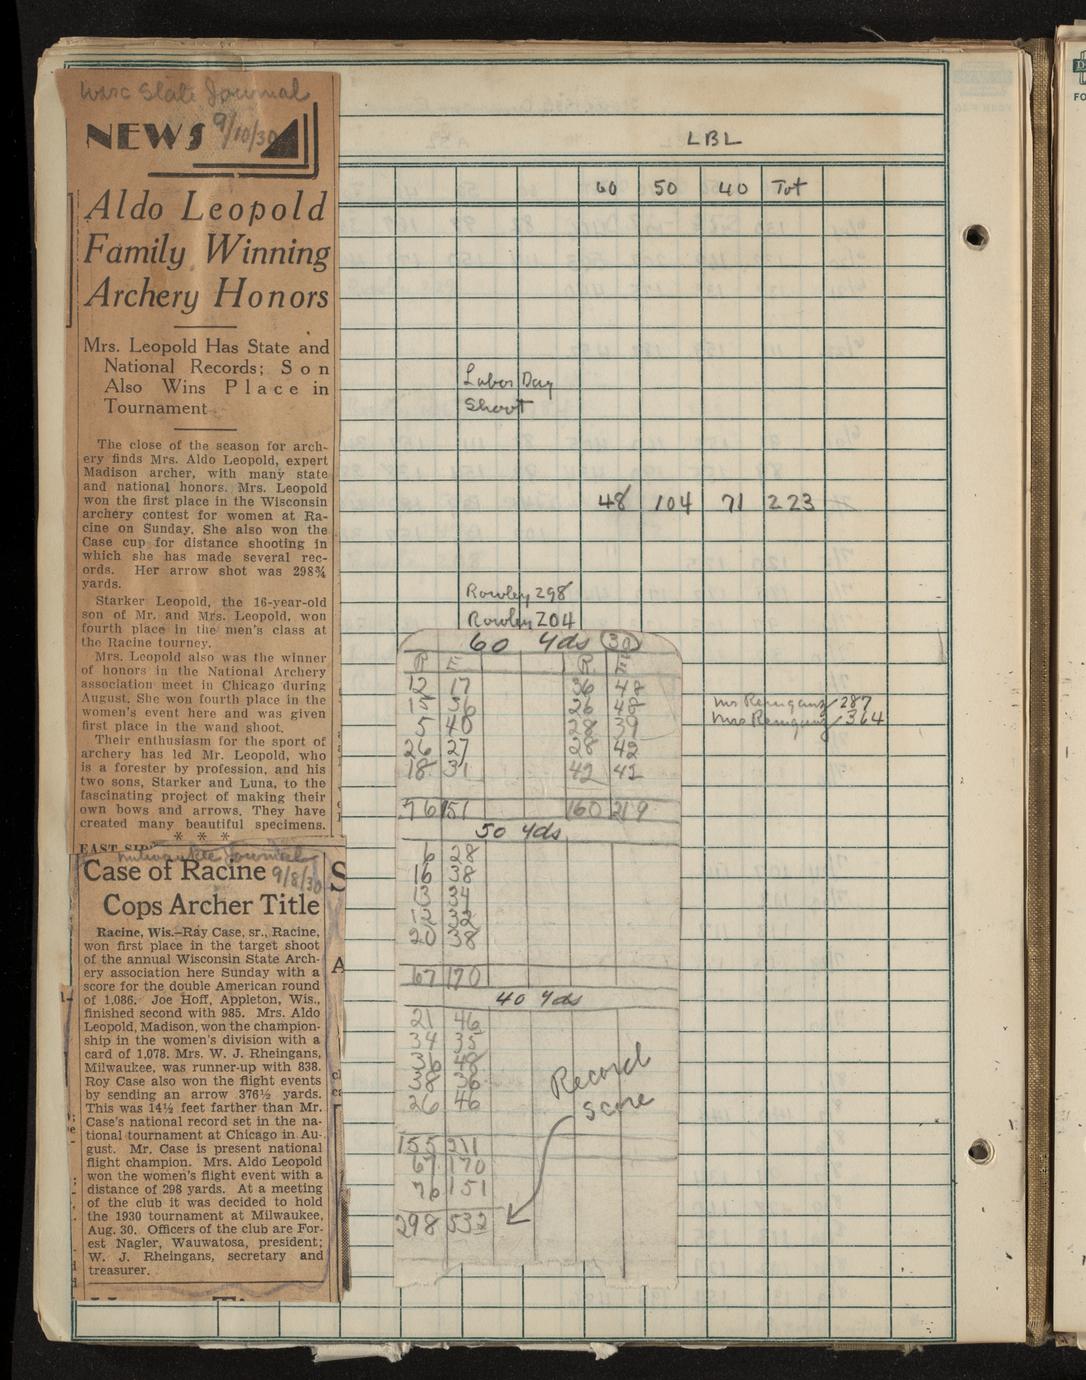 Wisc State Journal
9/10/30
NEWS
Aldo Leopold
Family Winning
Archery Honors
Mrs. Leopold Has State and
National Records; Son
Also Wins Place in
Tournament
The close of the season for arch-
ery finds Mrs. Aldo Leopold, expert
Madison archer, with many state
and national honors. Mrs. Leopold
won the first place in the Wisconsin
archery contest for women at Ra-
cine on Sunday. She also won the
Case cup for distance shooting in
which she has made several rec-
ords. Her arrow shot was 298¾
yards.
Starker Leopold, the 16-year-old
son of Mr. and Mrs. Leopold, won
fourth place in the men's class at
the Racine tourney.
Mrs. Leopold also was the winner
of honors in the National Archery
association meet in Chicago during
August. She won fourth place in the
women's event here and was given
first place in the wand shoot.
Their enthusiasm for the sport of
archery has led Mr. Leopold, who
is a forester by profession, and his
two sons, Starker and Luna, to the
fascinating project of making their
own bows and arrows. They have
created many beautiful specimens.
* * *
EAST
Milwaukee Journal
9/8/30
Case of Racine
Cops Archer Title
Racine, Wis.—Ray Case, sr., Racine,
won first place in the target shoot
of the annual Wisconsin State Arch-
ery association here Sunday with a
score for the double American round
of 1,086. Joe Hoff, Appleton, Wis.,
finished second with 985. Mrs. Aldo
Leopold, Madison, won the champion-
ship in the women's division with a
card of 1,078. Mrs. W. J. Rheingans,
Milwaukee, was runner-up with 838.
Roy Case also won the flight events
by sending an arrow 376½ yards.
This was 14½ feet farther than Mr.
Case's national record set in the na-
tional tournament at Chicago in Au-
gust. Mr. Case is present national
flight champion. Mrs. Aldo Leopold
won the women's flight event with a
distance of 298 yards. At a meeting
of the club it was decided to hold
the 1930 tournament at Milwaukee,
Aug. 30. Officers of the club are For-
est Nagler, Wauwatosa, president;
W. J. Rheingans, secretary and
treasurer.
LBL
60 50 40 Tot
Labor Day
Shoot
48 104 71 223
Rowley 298
Rowley 204
287
364
60 Yds 30
R E R E
12 17 36 48
15 36 26 48
5 40 28 39
26 27 28 42
18 31 42 42
76 151 160 219
50 Yds
6 28
16 38
13 34
12 32
20 38
67 170
40 Yds
21 46
34 35
36 48
38 36
26 46
155 211
67 170
76 151
298 532
Record
score